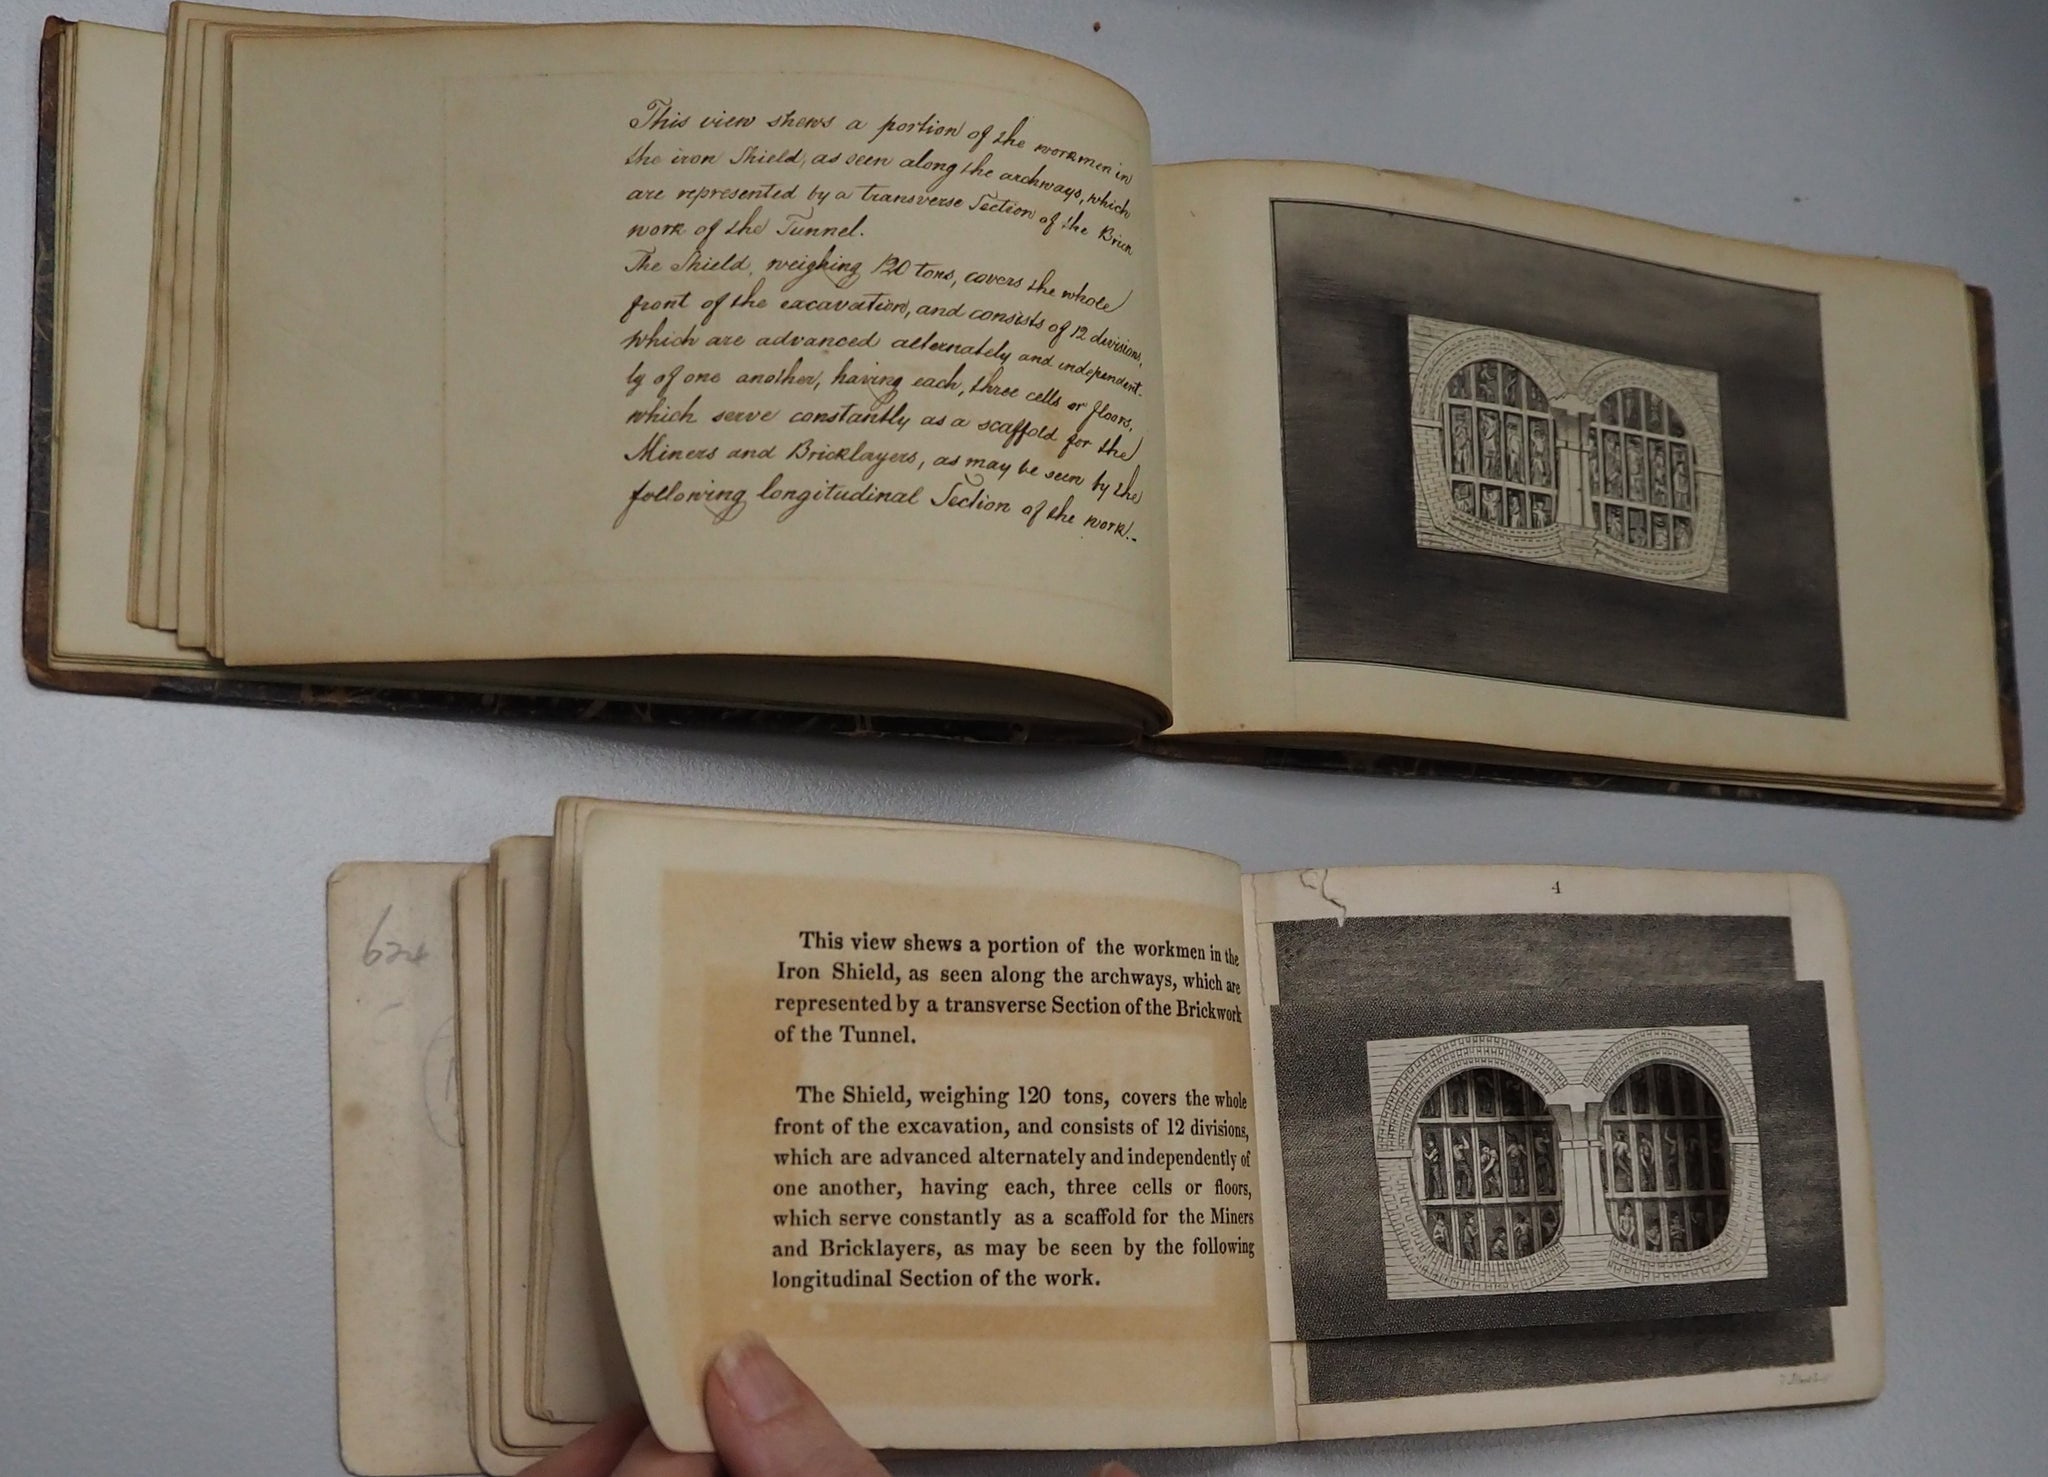 This view shews a portion of the workmen in
the iron Shield, as seen along the archways, which
are represented by a transverse Section of the Brick
work of the Tunnel.
The Shield, weighing 120 tons, covers the whole
front of the excavation, and consists of 12 divisions,
which are advanced alternately and independent-
ly of one another, having each, three cells or floors,
which serve constantly as a scaffold for the
Miners and Bricklayers, as may be seen by the
following longitudinal Section of the work.-
624
This view shews a portion of the workmen in the
Iron Shield, as seen along the archways, which are
represented by a transverse Section of the Brickwork
of the Tunnel.
The Shield, weighing 120 tons, covers the whole
front of the excavation, and consists of 12 divisions,
which are advanced alternately and independently of
one another, having each, three cells or floors,
which serve constantly as a scaffold for the Miners
and Bricklayers, as may be seen by the following
longitudinal Section of the work.
4